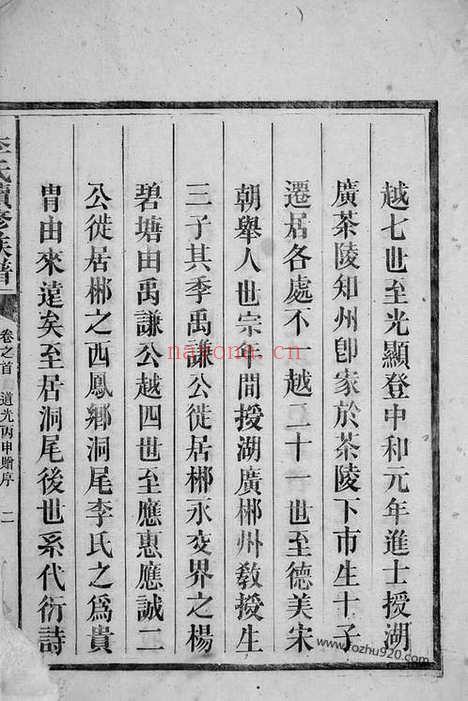 越七世至光顯登中和元年進士授湖
廣茶陵知州卽家於茶陵下市生十子
遷居各處不一越二十一世至德美宋
朝舉人世宗年間授湖廣郴州敎授生
三子其季禹謙公徙居郴永交界之楊
碧塘由禹謙公越四世至應惠應誠二
公徙居郴之西鳳鄉洞尾李氏之爲貴
胄由來遠矣至居洞尾後世系代衍詩
李氏續修族譜
卷之首 道光丙申贈序 二
nayona.cn
www.fozhu920.com